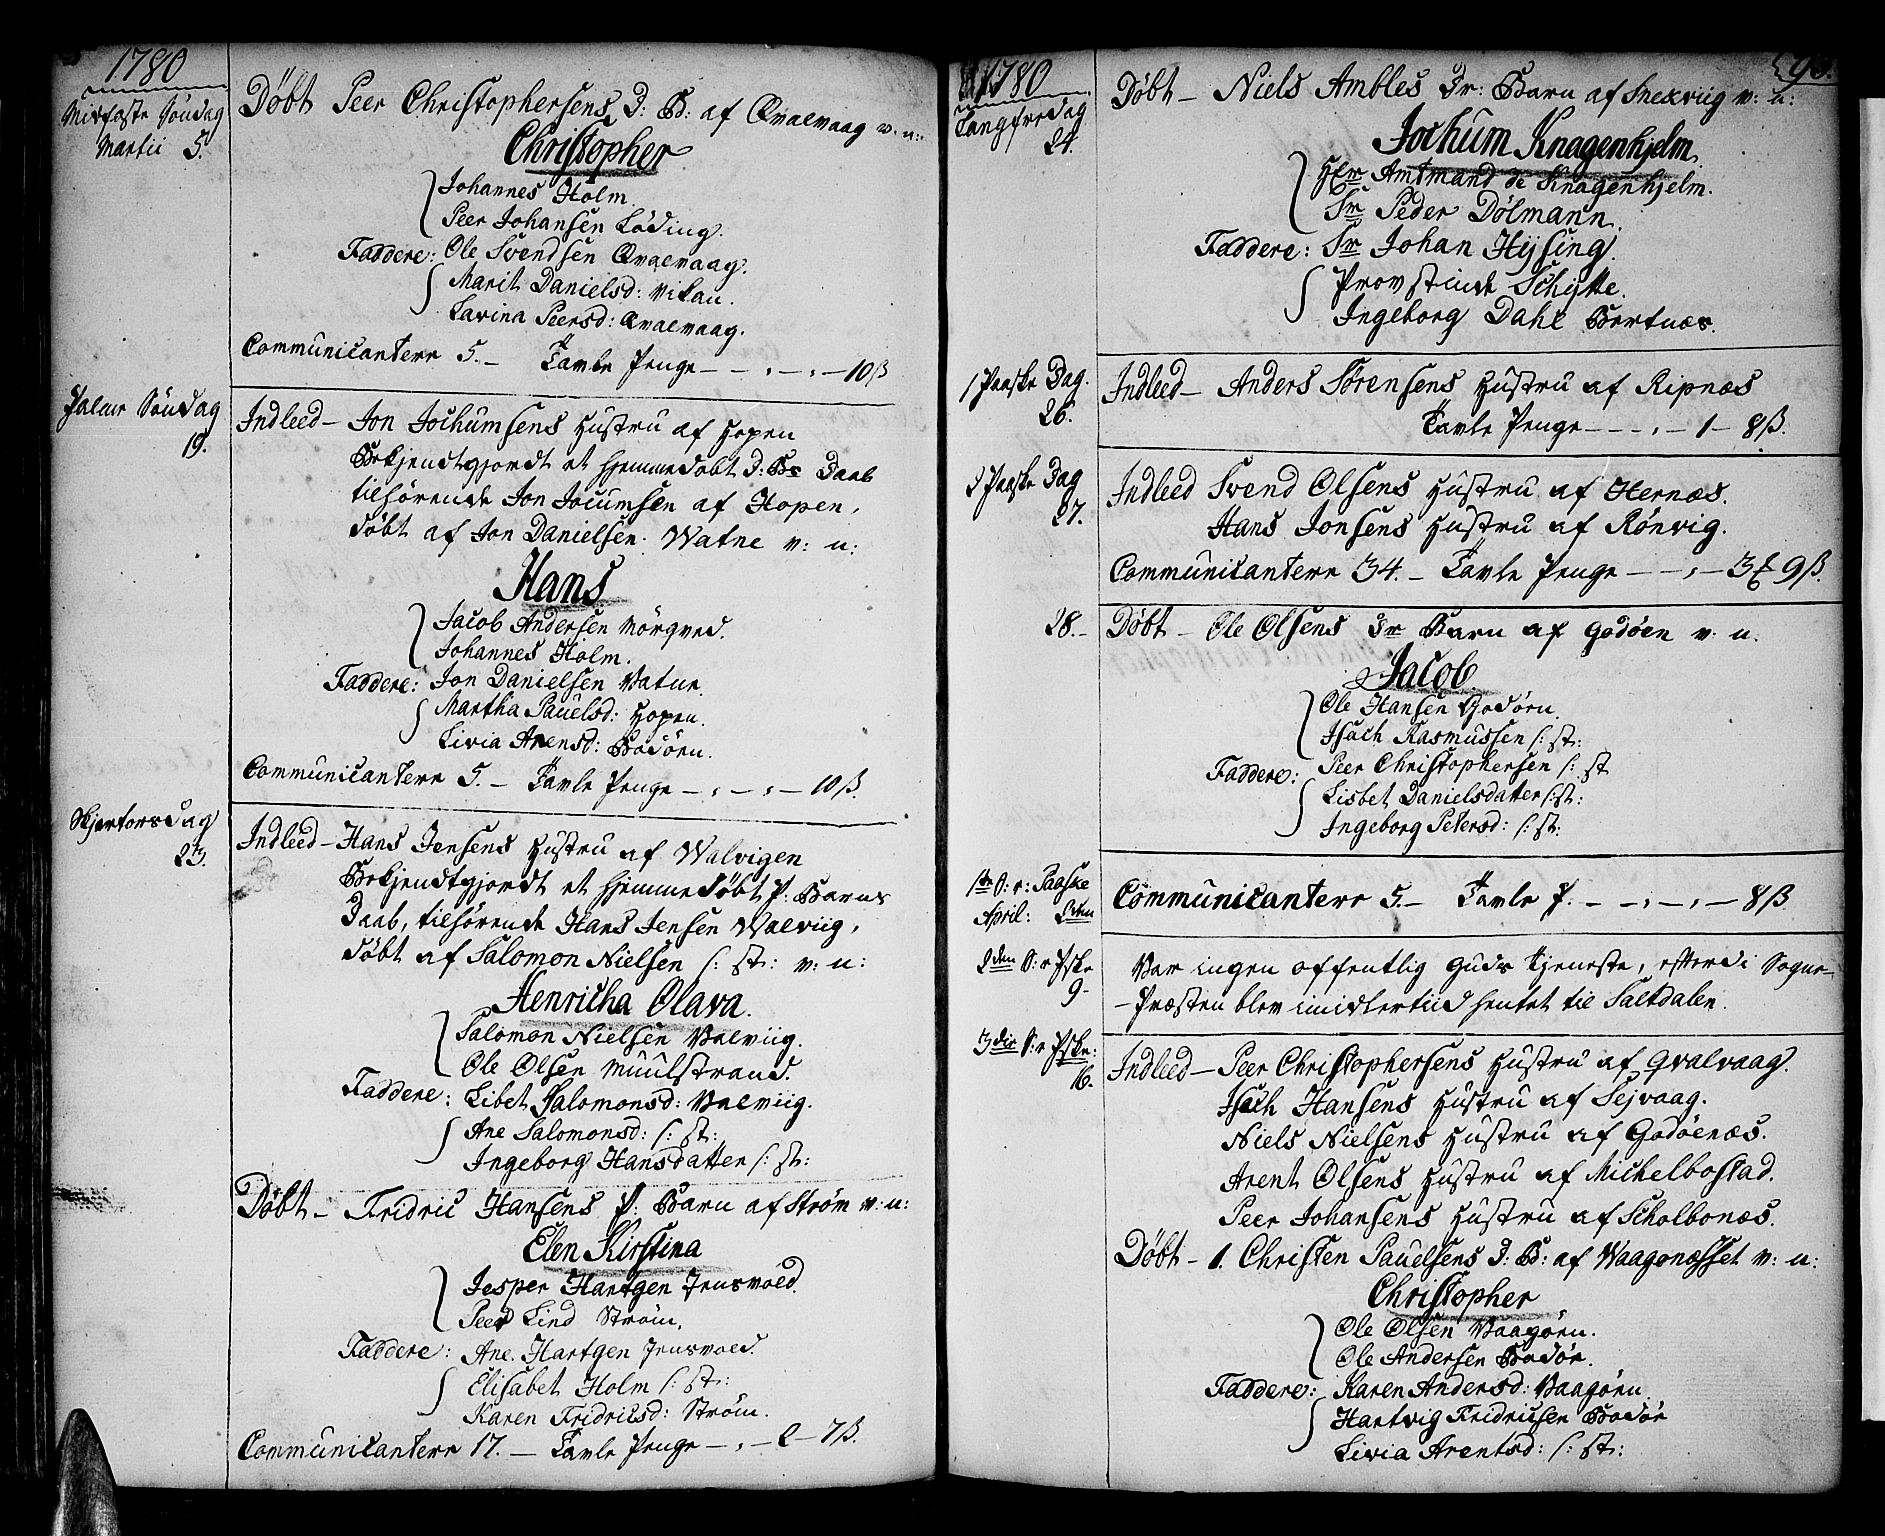 1780
Midfaste Søndag
Martii 5.
Døbt Peer Christophersens D: B: af Qvalvaag v: u:
Christopher
Johannes Holm.
Peer Johansen Løding.
Faddere: Ole Svendsen Qvalvaag.
Marit Danielsd: Vikan.
Lavina Peersd: Qvalvaag.
Communicantere 5. – Tavle Penge – – . – . – 10 ß
Palme Søndag
19.
Indleed – Jon Jochumsens Hustru af Hopen
Bekjendtgjordt et hjemmedøbt D: Bs Daab
tilhørende Jon Jocumsen af Hopen,
døbt af Jon Danielsen Watne v: u:
Hans
Jacob Andersen Mörqved.
Johannes Holm.
Faddere: Jon Danielsen Vatne.
Martha Pauelsd: Hopen.
Livia Arensd: Bodøen.
Communicantere 5. – Tavle Penge – . – . – 10 ß.
Skjertorsdag
23.
Indleed – Hans Jensens Hustru af Walvigen
Bekjendtgjordt et hjemmedøbt P: Barns
Daab, tilhørende Hans Jensen Walviig,
døbt af Salomon Nielsen /: st: v: u:
Henricha Olava.
Salomon Nielsen Valviig.
Ole Olsen Muulstrand.
Faddere: Libet Salomonsd: Valviig.
Ane Salomonsd: /: st:
Ingeborg Hansdatter /: st:
Døbt – Fridric Hansens P: Barn af Strøm v: u:
Elen Kirstina
Jesper Hartgen Jensvold.
Peer Lind Strøm.
Faddere: Ane Hartgen Jensvold.
Elisabet Holm /: st:
Karen Fridricsd: Strøm.
Communicantere 17. – Tavle Penge – . – 2 – 7 ß.
1780
90.
Langfredag
24.
Døbt – Niels Ambles Dr: Barn af Snekviig v: u:
Jochum Knagenhjelm
Hr Amtmand de Knagenhjelm.
Sr Peder Dölmann.
Faddere: Sr Johan Hysing.
Provstinde Schytte.
Ingeborg Dahl Bertnæs.
1 Paaske Dag.
26.
Indleed – Anders Sörensens Hustru af Ripnæs
Tavle Penge – – – . – 1 – 8 ß.
2 Paaske Dag
27.
Indleed Svend Olsens Hustru af Hernæs.
Hans Jonsens Hustru af Rönvig.
Communicantere 34. – Tavle Penge – – . – 3 9 ß.
28. –
Døbt – Ole Olsens Dr Barn af Godøen v: u.
Jacob
Ole Hansen Godøen.
Isach Rasmussen /: st:
Faddere: Peer Christophersen /: st
Lisbet Danielsdatter /: st:
Ingeborg Petersd: /: st:
1ste S: e: Paaske
April: 2den
Communicantere 5. – Tavle P. – – . – . – 8 ß
2den S: e Pske
9 –
Var ingen offentlig Guds Tjeneste, efterdi Sogne–
–Præsten blev imidlertiid hentet til Saltdalen.
3die S: e Pske:
16.
Indleed – Peer Christophersens Hustru af Qvalvaag.
Isach Hansens Hustru af Sejvaag.
Niels Nielsens Hustru af Godøenæs.
Arent Olsens Hustru af Michelbostad.
Peer Johansens Hustru af Scholbonæs.
Døbt – 1. Christen Pauelsens D: B: af Waagonæsset v: u:
Christopher
Ole Olsen Vaagøen.
Ole Andersen Bodøe.
Faddere: Karen Andersd: Vaagøen.
Hartvig Fridricsen Bodøe
Livia Arentsd: /: st: